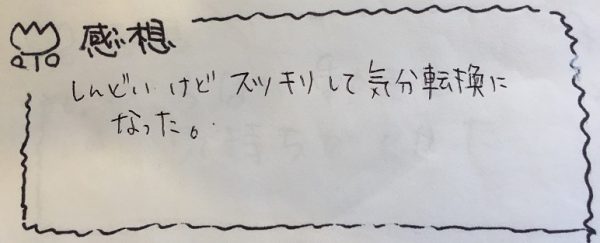 感想
しんどい けど スッキリ して 気分転換に
なった。